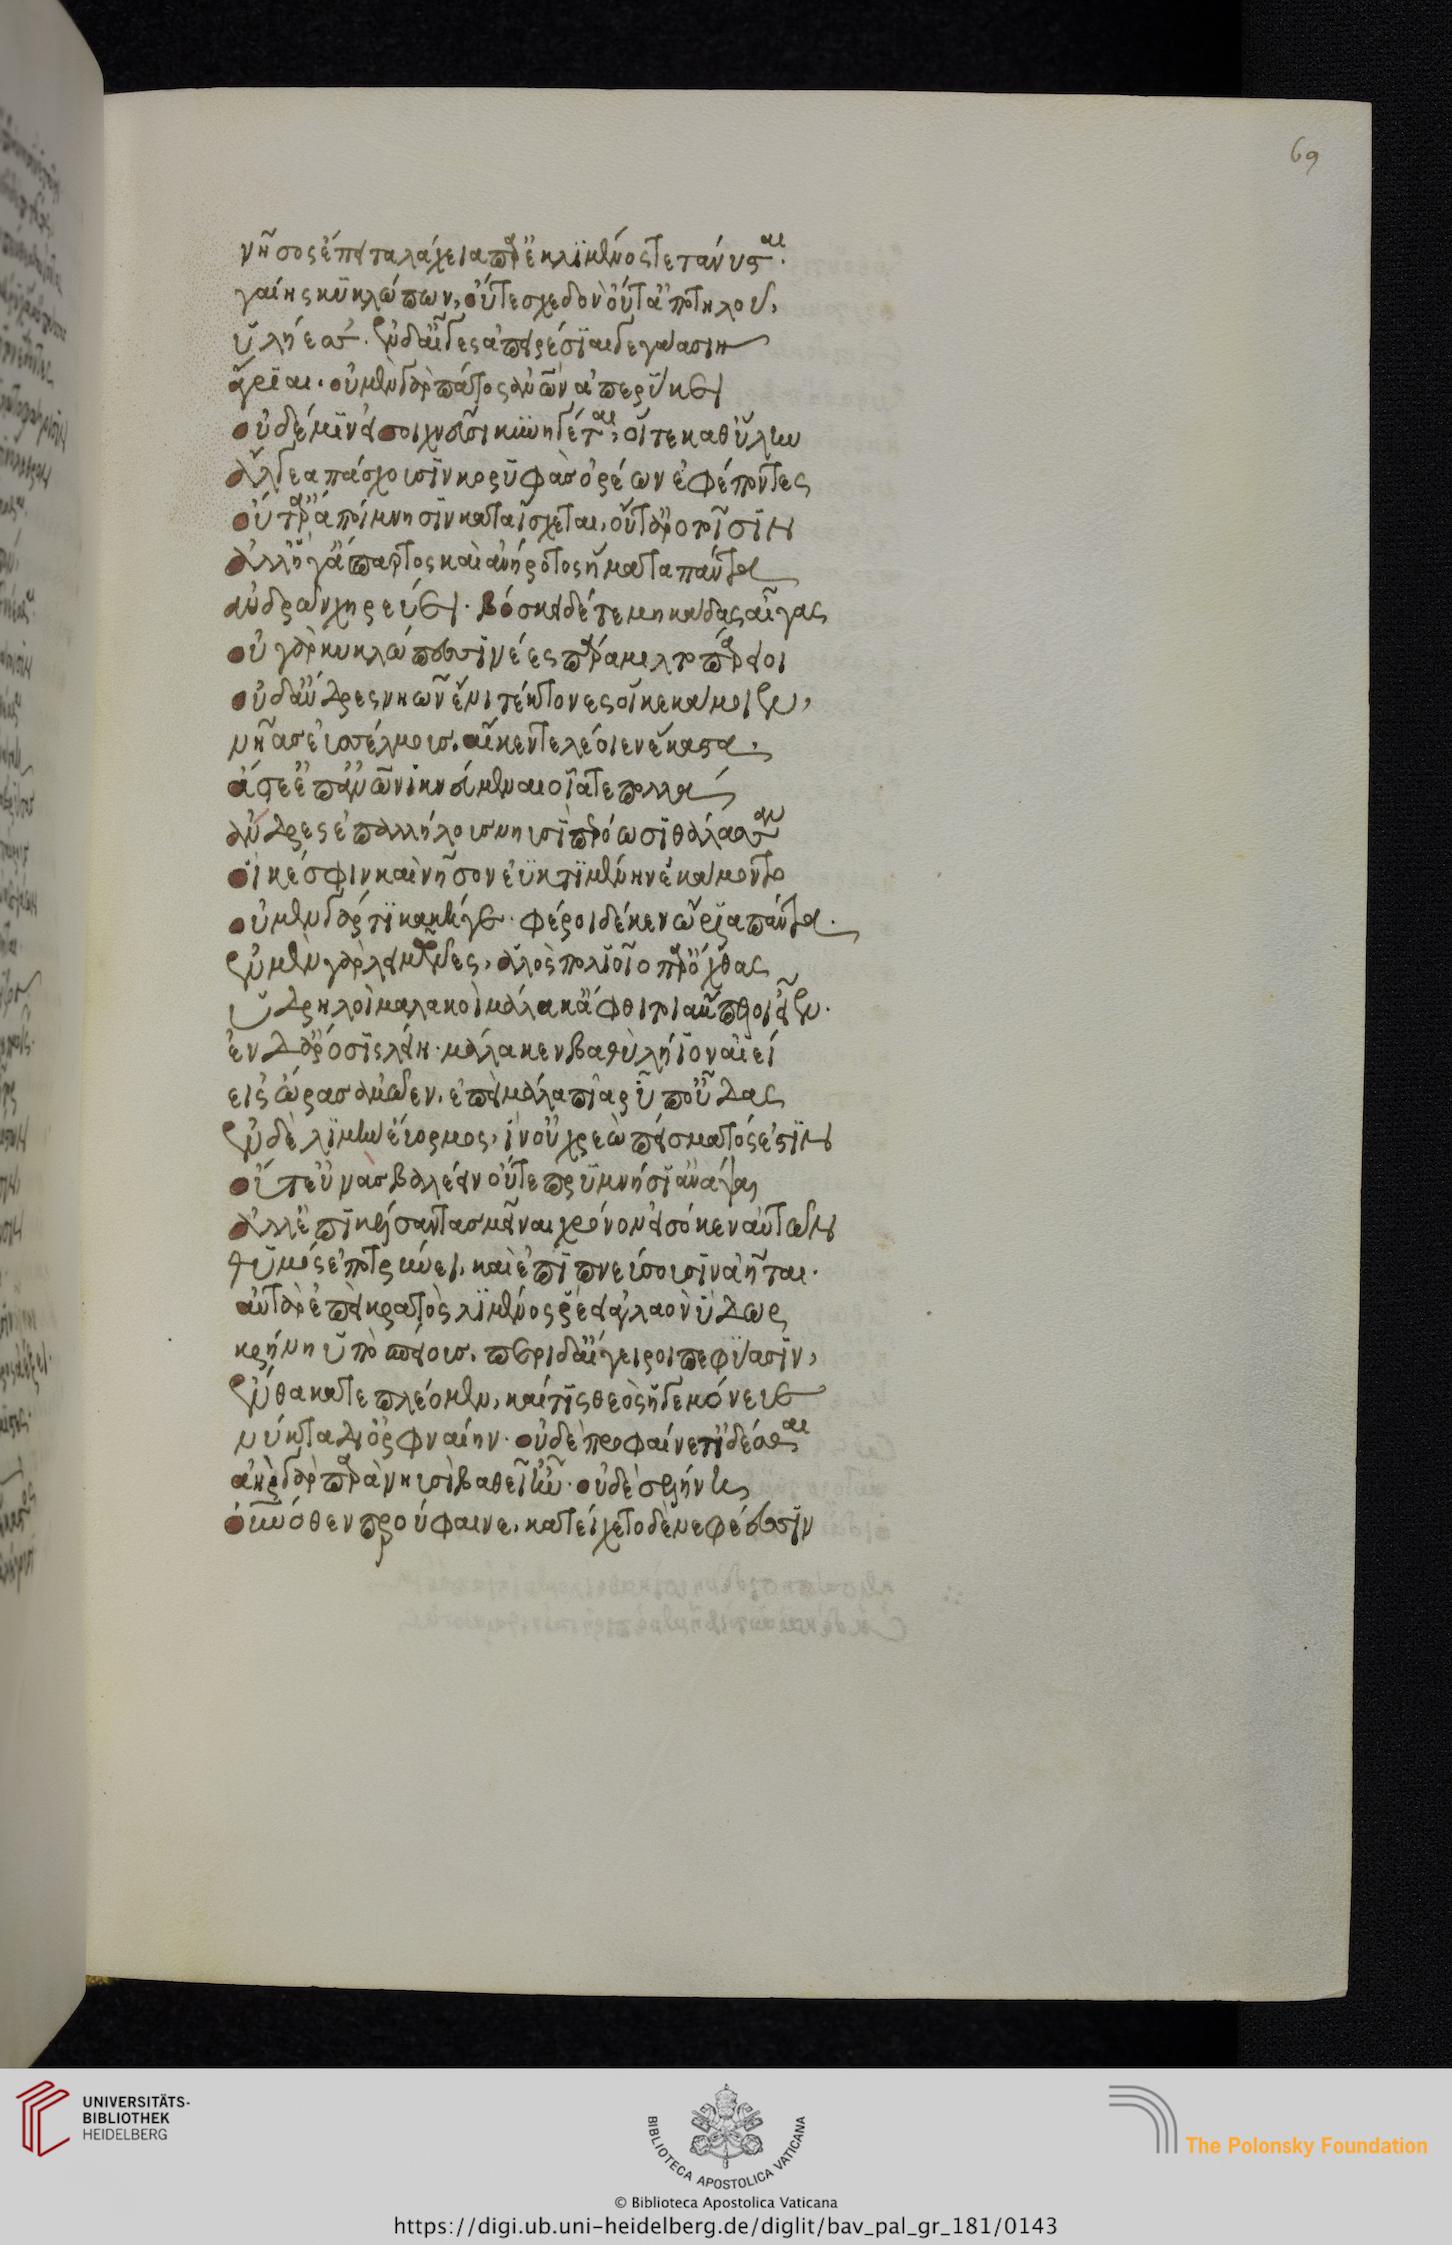 69
νῆσος ἔπειτα λάχεια παρὲκ λιμένος τετάνυσται.
γαίης κυκλώπων, οὔτε σχεδὸν οὔτ' ἀποτηλοῦ,
ὑλήεσσ'. ἐν δ' αἶγες ἀπειρέσιαι γεγάασιν
ἄγριαι. οὐ μὲν γὰρ πάτος ἀνθρώπων ἀπερύκει
οὐδέ μιν εἰσοιχνεῦσι κυνηγέται, οἵ τε καθ' ὕλην
ἄλγεα πάσχουσιν κορυφὰς ὀρέων ἐφέποντες
οὔτ' ἄρα ποίμνῃσιν καταΐσχεται, οὔτ' ἀρότοισιν
ἀλλ' ἥ γ' ἄσπαρτος καὶ ἀνήροτος ἤματα πάντα
ἀνδρῶν χηρεύει. βόσκει δέ τε μηκάδας αἶγας
οὐ γὰρ κυκλώπεσσι νέες πάρα μιλτοπάρῃοι
οὐδ' ἄνδρες νηῶν ἔνι τέκτονες οἵ κε κάμοιεν,
νῆας ἐϋσσέλμους. αἵ κεν τελέοιεν ἕκαστα.
ἄστε' ἐπ' ἀνθρώπων ἱκνεύμεναι οἷά τε πολλὰ
ἄνδρες ἐπ' ἀλλήλους νηυσὶ περόωσι θάλασσαν
οἵ κέ σφιν καὶ νῆσον ἐϋκτιμένην ἐκάμοντο
οὐ μὲν γάρ τι κακή γε. φέροι δέ κεν ὥρια πάντα.
ἐν μὲν γὰρ λειμῶνες, ἁλὸς πολιοῖο παρ' ὄχθας
ὑδρηλοὶ μαλακοὶ μάλα κ' ἄφθιτοι ἄμπελοι εἶεν.
ἐν δ' ἄροσις λείη. μάλα κεν βαθὺ λήϊον αἰεί
εἰς ὥρας ἀμῷεν, ἐπεὶ μάλα πῖαρ ὑπ' οὖδας
ἐν δὲ λιμὴν εὔορμος, ἵν' οὐ χρεὼ πείσματός ἐστιν
οὔτ' εὐνὰς βαλέειν οὔτε πρυμνήσι' ἀνάψαι
ἀλλ' ἐπικέλσαντας μεῖναι χρόνον εἰσόκεν αὐτῶν
θυμὸς ἐποτρύνει, καὶ ἐπιπνεύσουσιν ἀῆται.
αὐτὰρ ἐπὶ κρατὸς λιμένος ῥέει ἀγλαὸν ὕδωρ
κρήνη ὑπὸ σπείους. περὶ δ' αἴγειροι πεφύασιν,
ἔνθα κατεπλέομεν, καί τις θεὸς ἡγεμόνευε
νύκτα δι' ὀρφναίην. οὐδὲ προφαίνετ' ἰδέσθαι
ἀὴρ γὰρ παρὰ νηυσὶ βαθεῖ' ἦν. οὐδὲ σελήνη
οὐρανόθεν προύφαινε, κατείχετο δὲ νεφέεσσιν
UNIVERSITÄTS-
BIBLIOTHEK
HEIDELBERG
BIBLIOTECA APOSTOLICA VATICANA
The Polonsky Foundation
© Biblioteca Apostolica Vaticana
https://digi.ub.uni-heidelberg.de/diglit/bav_pal_gr_181/0143